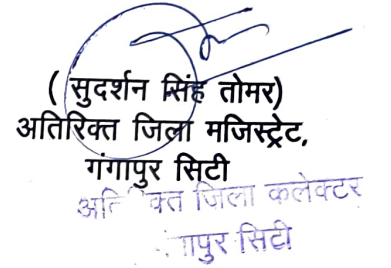 ( सुदर्शन सिंह तोमर)
अतिरिक्त जिला मजिस्ट्रेट,
गंगापुर सिटी
जिला कलेक्टर
सिटी